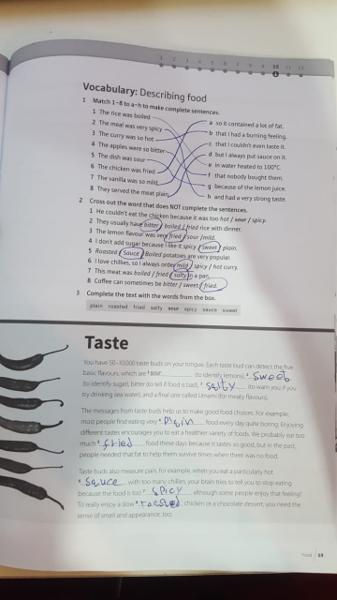 1 2 3 4 5 6 7 8 9 10 11 12
Vocabulary: Describing food
1 Match 1–8 to a–h to make complete sentences.
1 The rice was boiled
2 The meal was very spicy
3 The curry was so hot
4 The apples were so bitter
5 The dish was sour
6 The chicken was fried
7 The vanilla was so mild
8 They served the meat plain,
a so it contained a lot of fat.
b that I had a burning feeling.
c that I couldn't even taste it.
d but I always put sauce on it.
e in water heated to 100°C.
f that nobody bought them.
g because of the lemon juice.
h and had a very strong taste.
2 Cross out the word that does NOT complete the sentences.
1 He couldn't eat the chicken because it was too hot / sour / spicy.
2 They usually have bitter / boiled / fried rice with dinner.
3 The lemon flavour was very fried / sour / mild.
4 I don't add sugar because I like it spicy / sweet / plain.
5 Roasted / Sauce / Boiled potatoes are very popular.
6 I love chillies, so I always order mild / spicy / hot curry.
7 This meat was boiled / fried / salty in a pan.
8 Coffee can sometimes be bitter / sweet / fried.
3 Complete the text with the words from the box.
plain roasted fried salty sour spicy sauce sweet
Taste
You have 50–10,000 taste buds on your tongue. Each taste bud can detect the five
basic flavours, which are ¹ sour (to identify lemons), ² sweet
(to identify sugar), bitter (to tell if food is bad), ³ salty (to warn you if
you try drinking sea water), and a final one called Umami (for meaty flavours).
The messages from taste buds help us to make good food choices. For example,
most people find eating very ⁴ Plain food every day quite boring. Enjoying
different tastes encourages you to eat a healthier variety of foods. We probably eat too
much ⁵ fried food these days because it tastes so good, but in the past,
people needed that fat to help them survive times when there was no food.
Taste buds also measure pain, for example, when you eat a particularly hot
⁶ Sauce with too many chillies, your brain tries to tell you to stop eating
because the food is too ⁷ spicy, although some people enjoy that feeling!
To really enjoy a slow ⁸ roasted chicken or a chocolate dessert, you need the
sense of smell and appearance, too.
Food